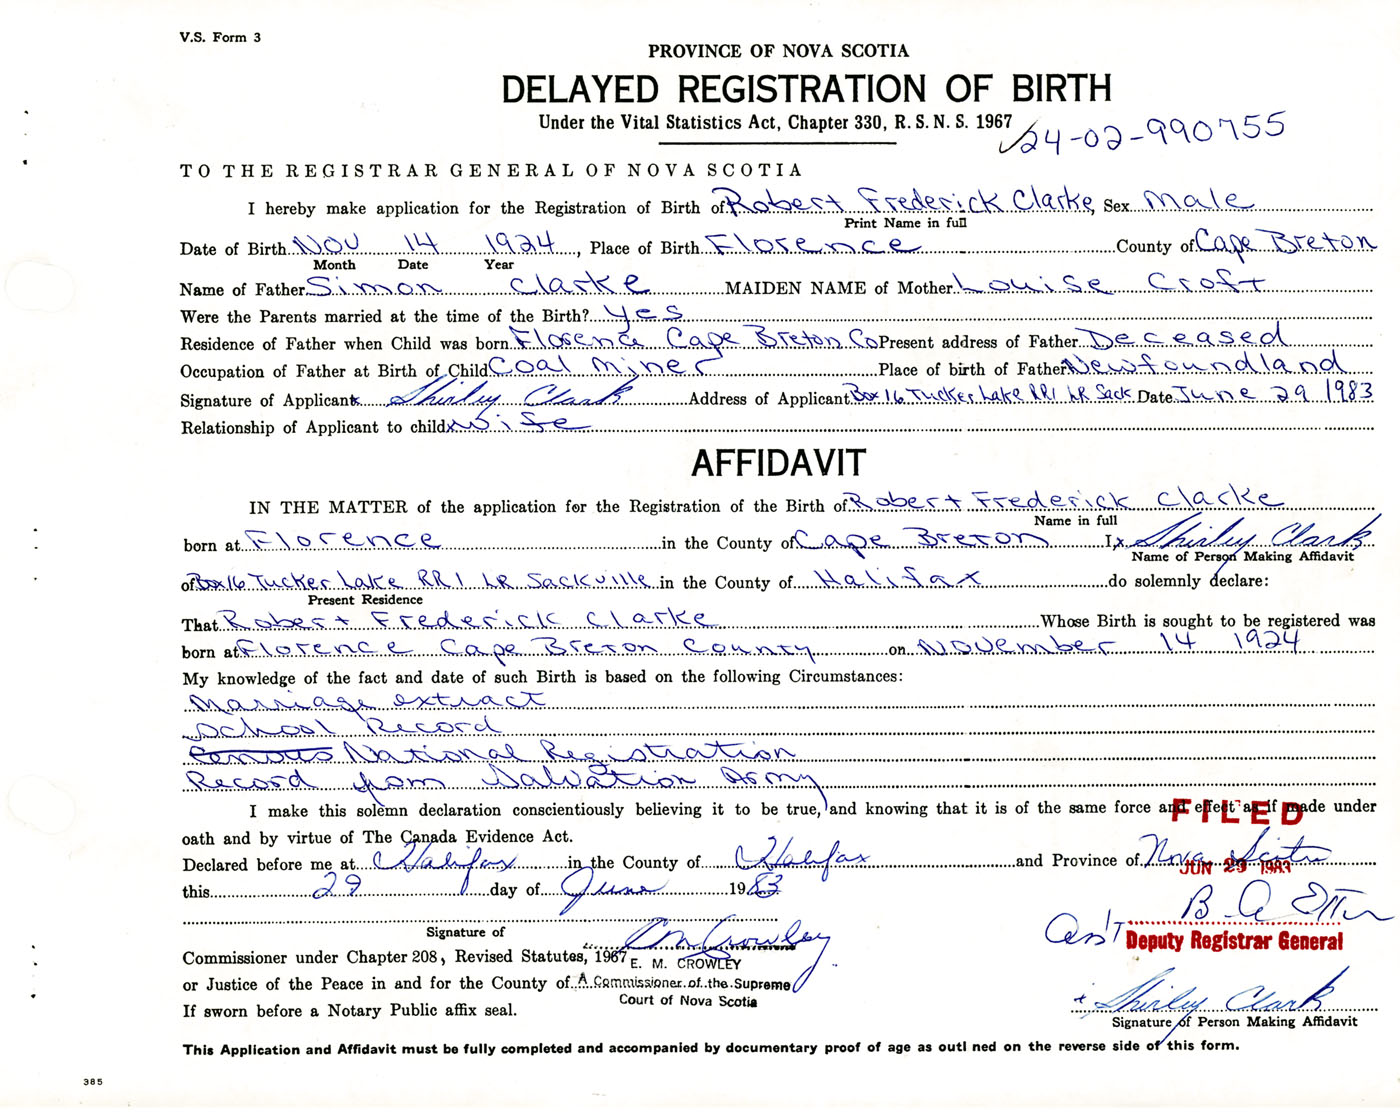 V.S. Form 3
PROVINCE OF NOVA SCOTIA
DELAYED REGISTRATION OF BIRTH
Under the Vital Statistics Act, Chapter 330, R.S.N.S. 1967
24-02-990755
TO THE REGISTRAR GENERAL OF NOVA SCOTIA
I hereby make application for the Registration of Birth of Robert Frederick Clarke, Sex Male
Print Name in full
Date of Birth Nov 14 1924, Place of Birth Florence County of Cape Breton
Month Date Year
Name of Father Simon Clarke MAIDEN NAME of Mother Louise Croft
Were the Parents married at the time of the Birth? Yes
Residence of Father when Child was born Florence Cape Breton Co Present address of Father Deceased
Occupation of Father at Birth of Child Coal Miner Place of birth of Father Newfoundland
Signature of Applicant x Shirley Clark Address of Applicant Box 16 Tucker Lake RR1 LR Sack Date June 29 1983
Relationship of Applicant to child x Wife
AFFIDAVIT
IN THE MATTER of the application for the Registration of the Birth of Robert Frederick Clarke
Name in full
born at Florence in the County of Cape Breton I, x Shirley Clark
Name of Person Making Affidavit
of Box 16 Tucker Lake RR1 LR Sackville in the County of Halifax do solemnly declare:
Present Residence
That Robert Frederick Clarke Whose Birth is sought to be registered was
born at Florence Cape Breton County on November 14 1924
My knowledge of the fact and date of such Birth is based on the following Circumstances:
Marriage extract
School Record
National Registration
Record from Salvation Army
I make this solemn declaration conscientiously believing it to be true, and knowing that it is of the same force and effect as if made under
FILED
oath and by virtue of The Canada Evidence Act.
Declared before me at Halifax in the County of Halifax and Province of Nova Scotia
JUN 29 1983
this 29 day of June 1983
B A Etter
Signature of
Ass't Deputy Registrar General
EM Crowley
Commissioner under Chapter 208, Revised Statutes, 1967
E. M. CROWLEY
or Justice of the Peace in and for the County of A Commissioner of the Supreme
Court of Nova Scotia
x Shirley Clark
If sworn before a Notary Public affix seal.
Signature of Person Making Affidavit
This Application and Affidavit must be fully completed and accompanied by documentary proof of age as outl ned on the reverse side of this form.
385